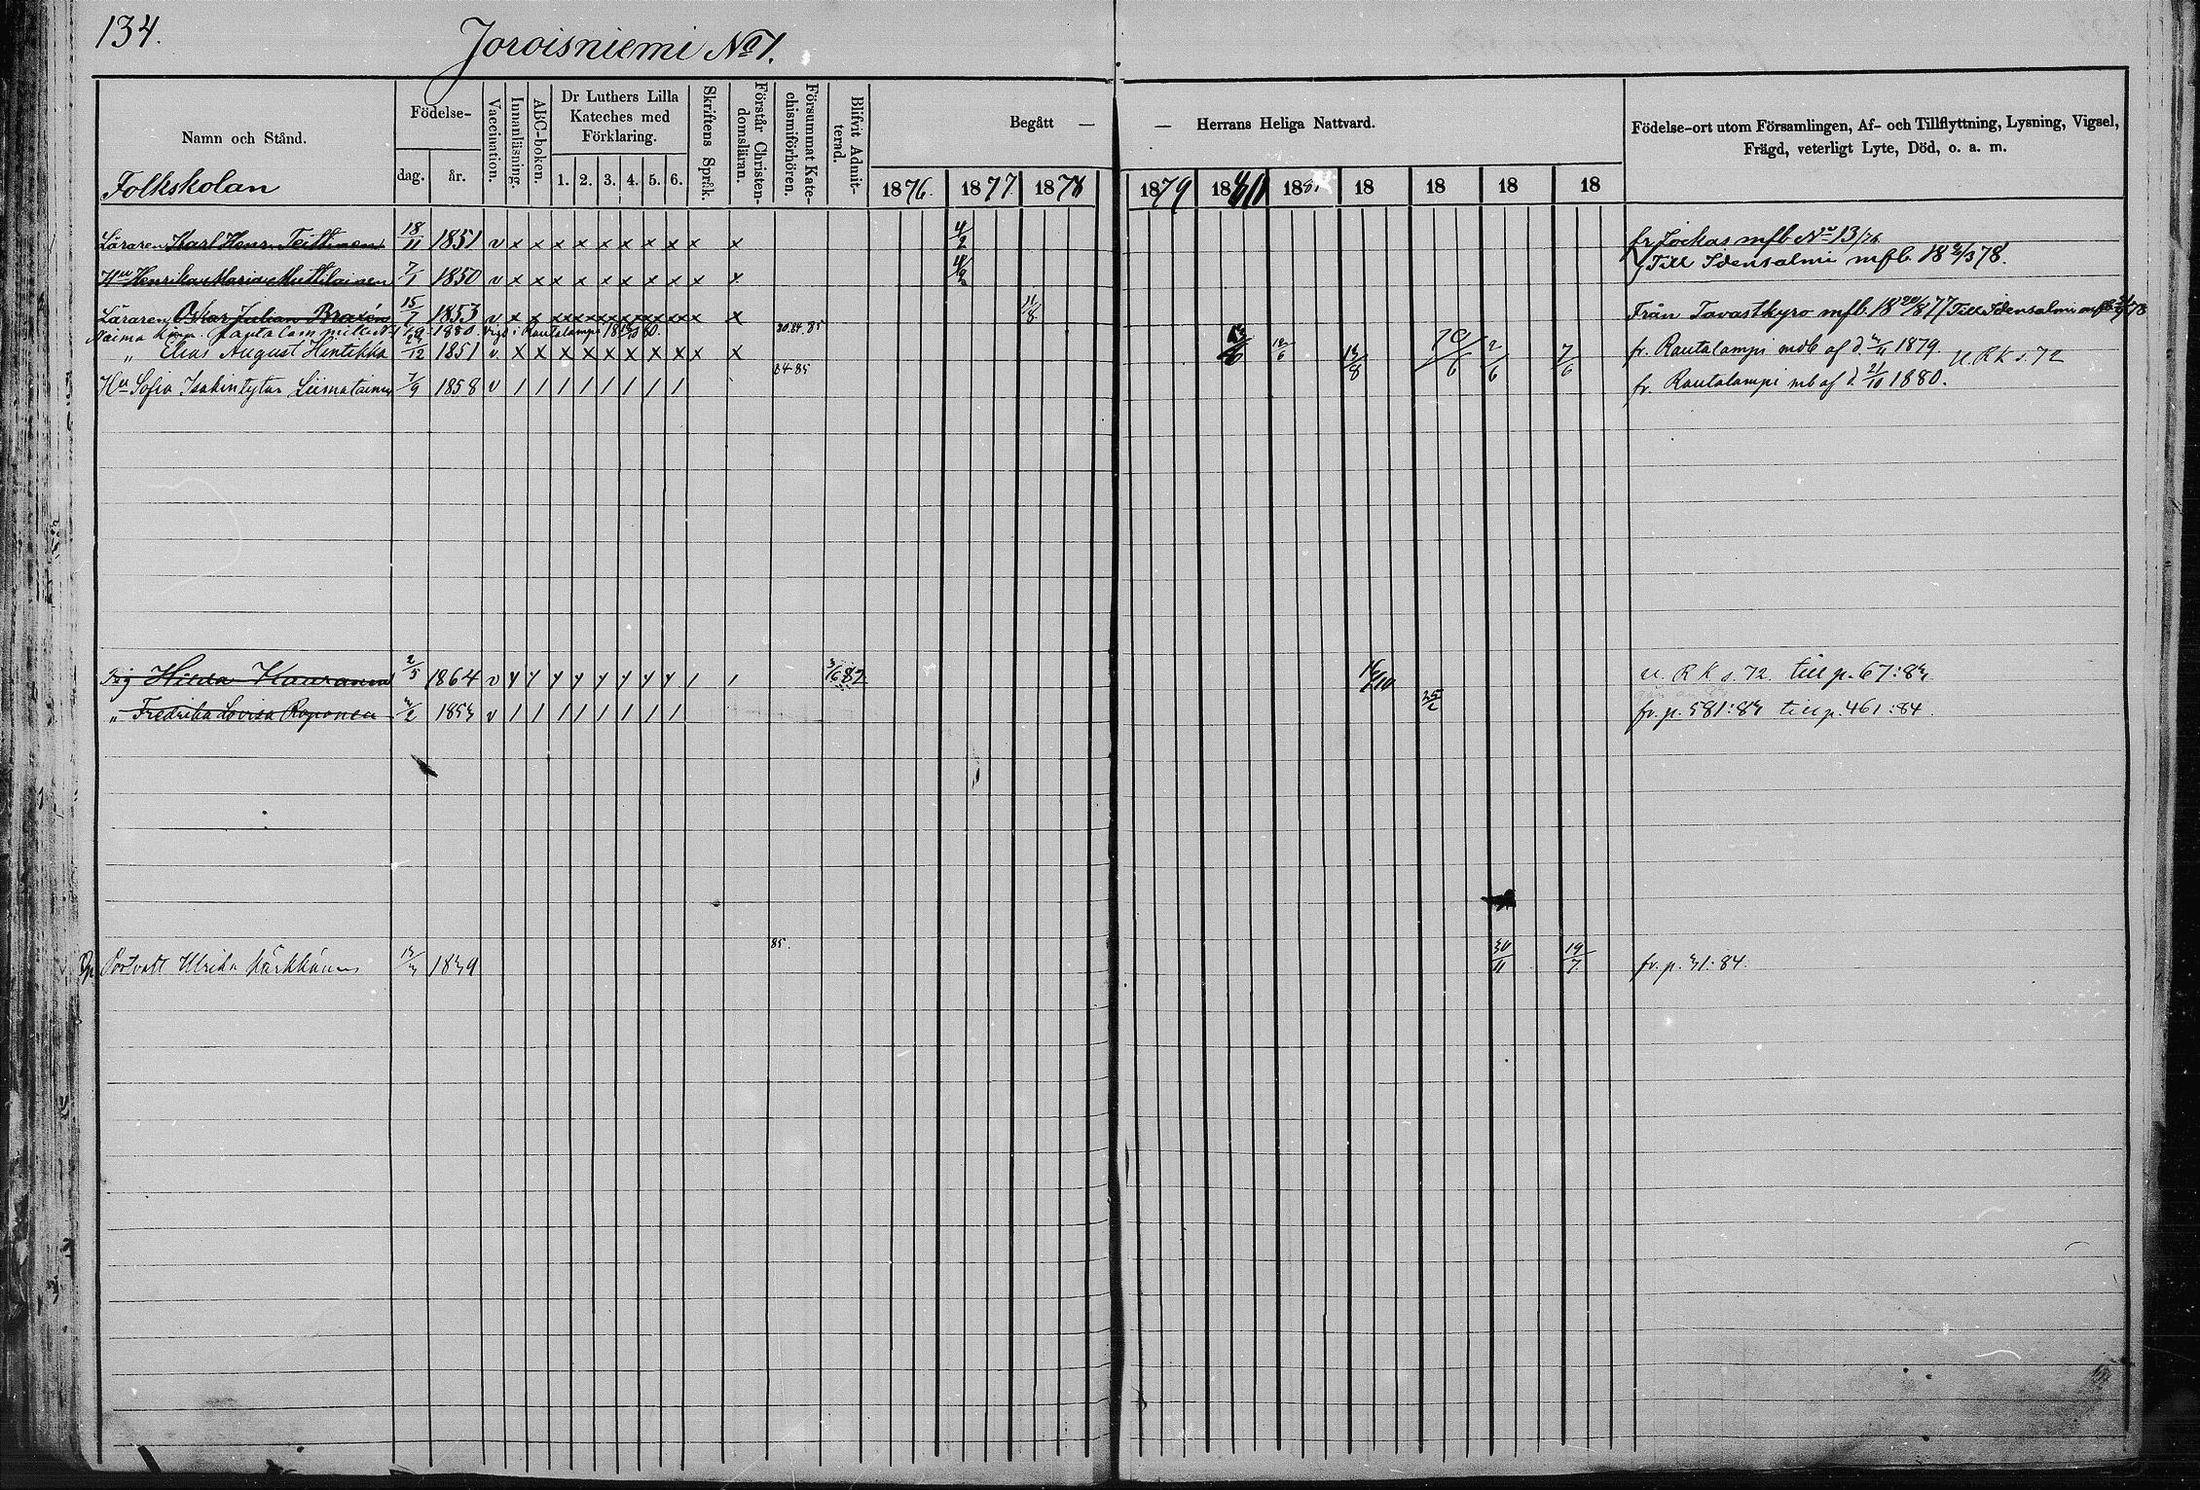 134.
Joroisniemi No 1.
Namn och Stånd.
Födelse-
dag.
år.
Vaccination.
Innanläsning.
ABC-boken.
Dr Luthers Lilla
Kateches med
Förklaring.
1. 2. 3. 4. 5. 6.
Skriftens Språk.
Förstår Christen-
domsläran.
Försummat Kate-
chismiförhören.
Blifvit Admit-
terad.
Begått — — Herrans Heliga Nattvard.
1876. 1877. 1878 1879 18 188 18 18 18 18
Födelse-ort utom Församlingen, Af- och Tillflyttning, Lysning, Vigsel,
Frägd, veterligt Lyte, Död, o. a. m.
Folkskolan
Läraren Karl Henr. Teittinen 18/11 1851 v x x x x x x x x x x 4/2 fr Jockas mfb No 13/76
Hu Henrika Maria Muttilainen 7/1 1850 v x x x x x x x x x x 4/2 Till Idensalmi mfb 18 /3 78.
Läraren Oskar Julian Braxén 15/7 1853 v x x x x x x x x x x 11/8 Från Tavastkyro mfb 18 20/8 77 Till Idensalmi mfb 78
1880. Vigd i Rautalampi 80.
„ Elias August Hintikka /12 1851 v x x x x x x x x x x 2/6 7/6 fr. Rautalampi mdb af d. /11 1879. u. R K s. 72
84 85
Hu Sofia Isakintytär Liimatainen 7/9 1858 v / / / / / / / / fr. Rautalampi mb af d. 21/10 1880.
Pig Hilda Kauranen 2/5 1864 v 82 u. R K s. 72. till p. 67:83
„ Fredrika Lovisa Roponen 1853 v / / / / / / / / 25/ fr. p. 581:83 till p. 461:84
85.
Ulrika Kärkkäinen 1839 30/11 19/7 fr. p. 31:84.